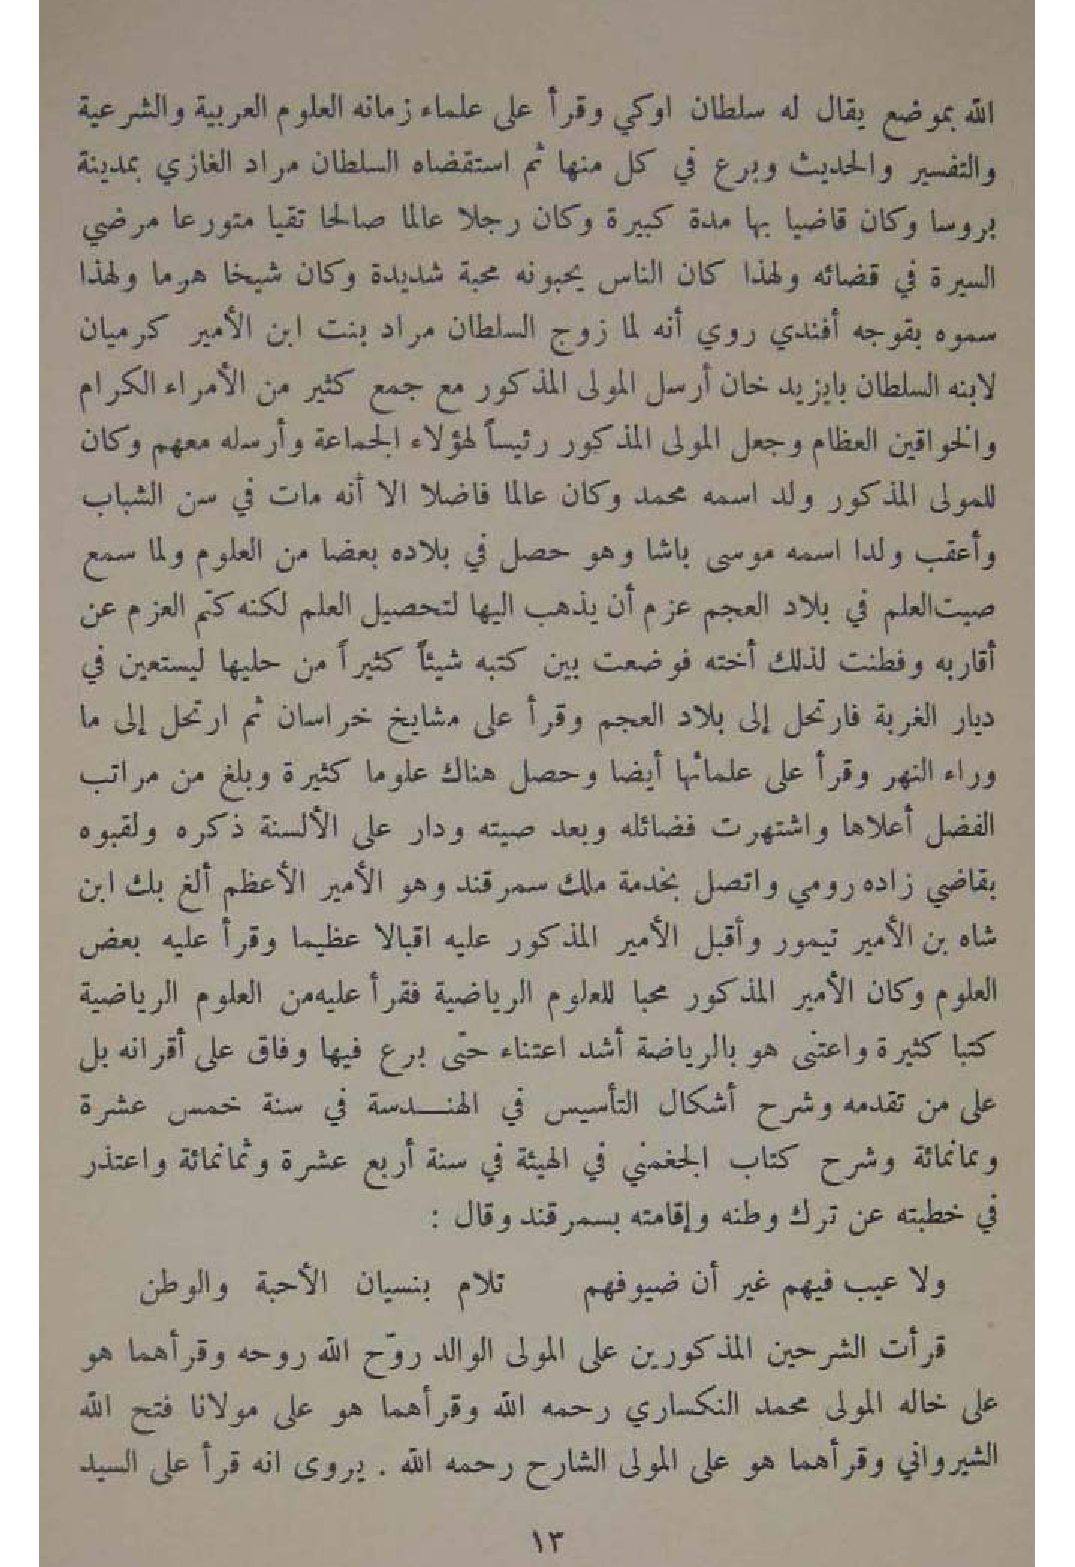 الله بموضع يقال له سلطان اوكي وقرأ على علماء زمانه العلوم العربية والشرعية
والتفسير والحديث وبرع في كل منها ثم استقضاه السلطان مراد الغازي بمدينة
بروسا وكان قاضيا بها مدة كبيرة وكان رجلا عالما صالحا تقيا متورعا مرضي
السيرة في قضائه ولهذا كان الناس يحبونه محبة شديدة وكان شيخا هرما ولهذا
سموه بقوجه أفندي روي أنه لما زوج السلطان مراد بنت ابن الأمير كرميان
لابنه السلطان بايزيد خان أرسل المولى المذكور مع جمع كثير من الأمراء الكرام
والخواقين العظام وجعل المولى المذكور رئيساً لهؤلاء الجماعة وأرسله معهم وكان
للمولى المذكور ولد اسمه محمد وكان عالما فاضلا الا أنه مات في سن الشباب
وأعقب ولدا اسمه موسى باشا وهو حصل في بلاده بعضا من العلوم ولما سمع
صيت العلم في بلاد العجم عزم أن يذهب اليها لتحصيل العلم لكنه كتم العزم عن
أقاربه وفطنت لذلك أخته فوضعت بين كتبه شيئاً كثيراً من حليها ليستعين في
ديار الغربة فارتحل إلى بلاد العجم وقرأ على مشايخ خراسان ثم ارتحل إلى ما
وراء النهر وقرأ على علمائها أيضا وحصل هناك علوما كثيرة وبلغ من مراتب
الفضل أعلاها واشتهرت فضائله وبعد صيته ودار على الألسنة ذكره ولقبوه
بقاضي زاده رومي واتصل بخدمة ملك سمرقند وهو الأمير الأعظم ألغ بك ابن
شاه بن الأمير تيمور وأقبل الأمير المذكور عليه اقبالا عظيما وقرأ عليه بعض
العلوم وكان الأمير المذكور محبا للعلوم الرياضية فقرأ عليه من العلوم الرياضية
كتبا كثيرة واعتنى هو بالرياضة أشد اعتناء حتّى برع فيها وفاق على أقرانه بل
على من تقدمه وشرح أشكال التأسيس في الهنـدسة في سنة خمس عشرة
وثمانمائة وشرح كتاب الجغمني في الهيئة في سنة أربع عشرة وثمانمائة واعتذر
في خطبته عن ترك وطنه وإقامته بسمرقند وقال :
ولا عيب فيهم غير أن ضيوفهم تلام بنسيان الأحبة والوطن
قرأت الشرحين المذكورين على المولى الوالد روّح الله روحه وقرأهما هو
على خاله المولى محمد النكساري رحمه الله وقرأهما هو على مولانا فتح الله
الشيرواني وقرأهما هو على المولى الشارح رحمه الله . يروى انه قرأ على السيد
١٣